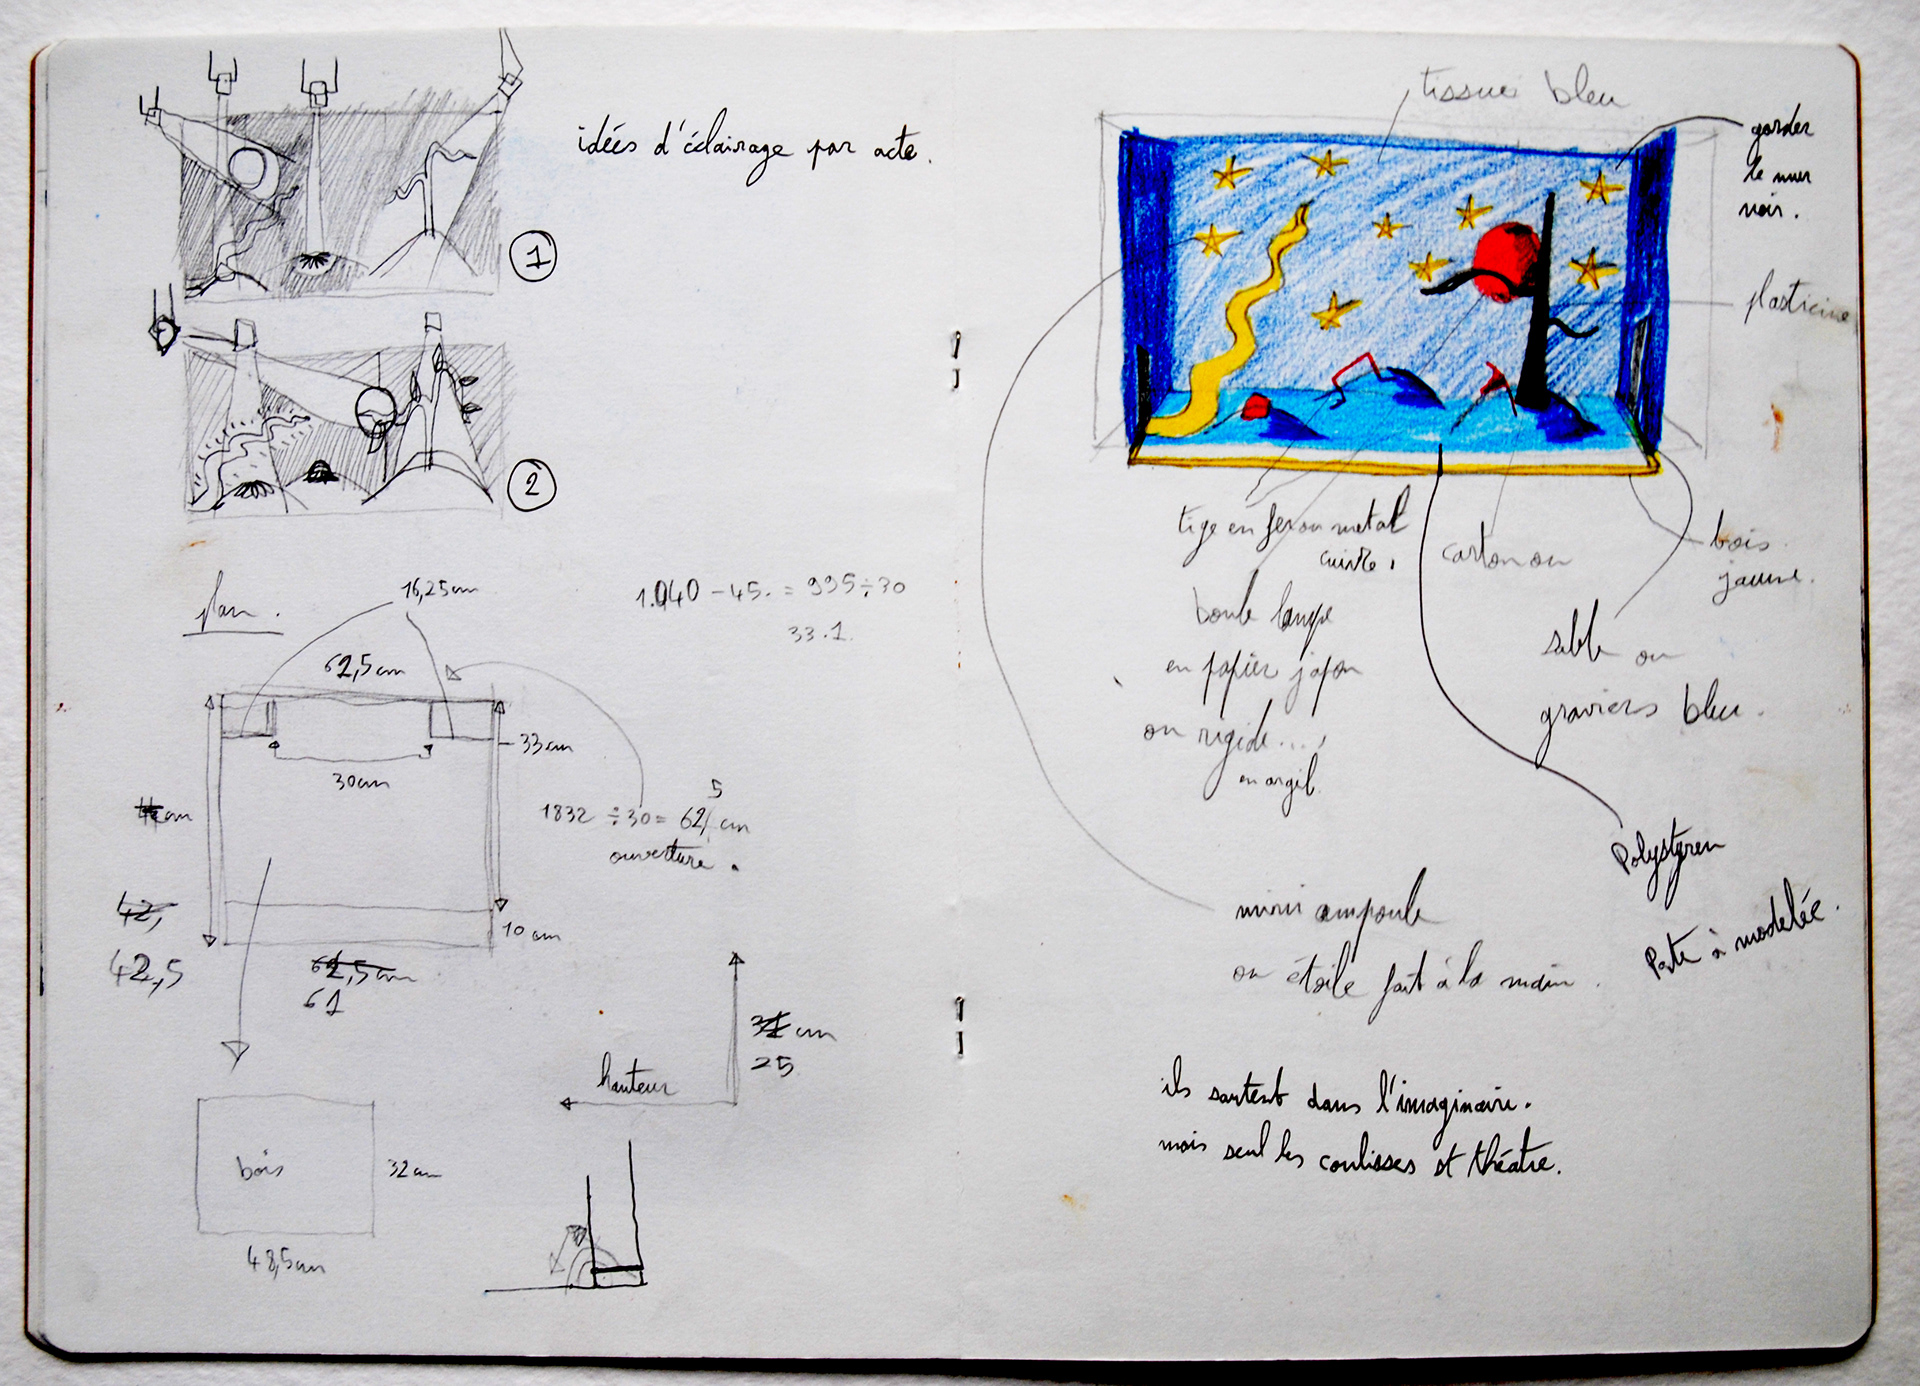 idées d'éclairage par acte.
1
2
plan.
16,25cm
1.040 - 45. = 995 ÷ 30
33.1
62,5cm
33cm
30cm
cm
5
1832 ÷ 30 = 62, cm
ouverture.
42,
42,5
10 cm
62,5cm
61
cm
25
hauteur
bois
32cm
48,5cm
tissus bleu
garder
le mur
noir.
plasticine
tige en fer ou metal
cuivre,
carton ou
bois
jaune.
boule lampe
en papier japon
ou rigide...,
en argil
sable ou
graviers bleu.
Polystyren
Pate à modelée.
mini ampoule
ou étoile fait à la main.
ils sautent dans l'imaginaire.
mais seul les coulisses st théatre.